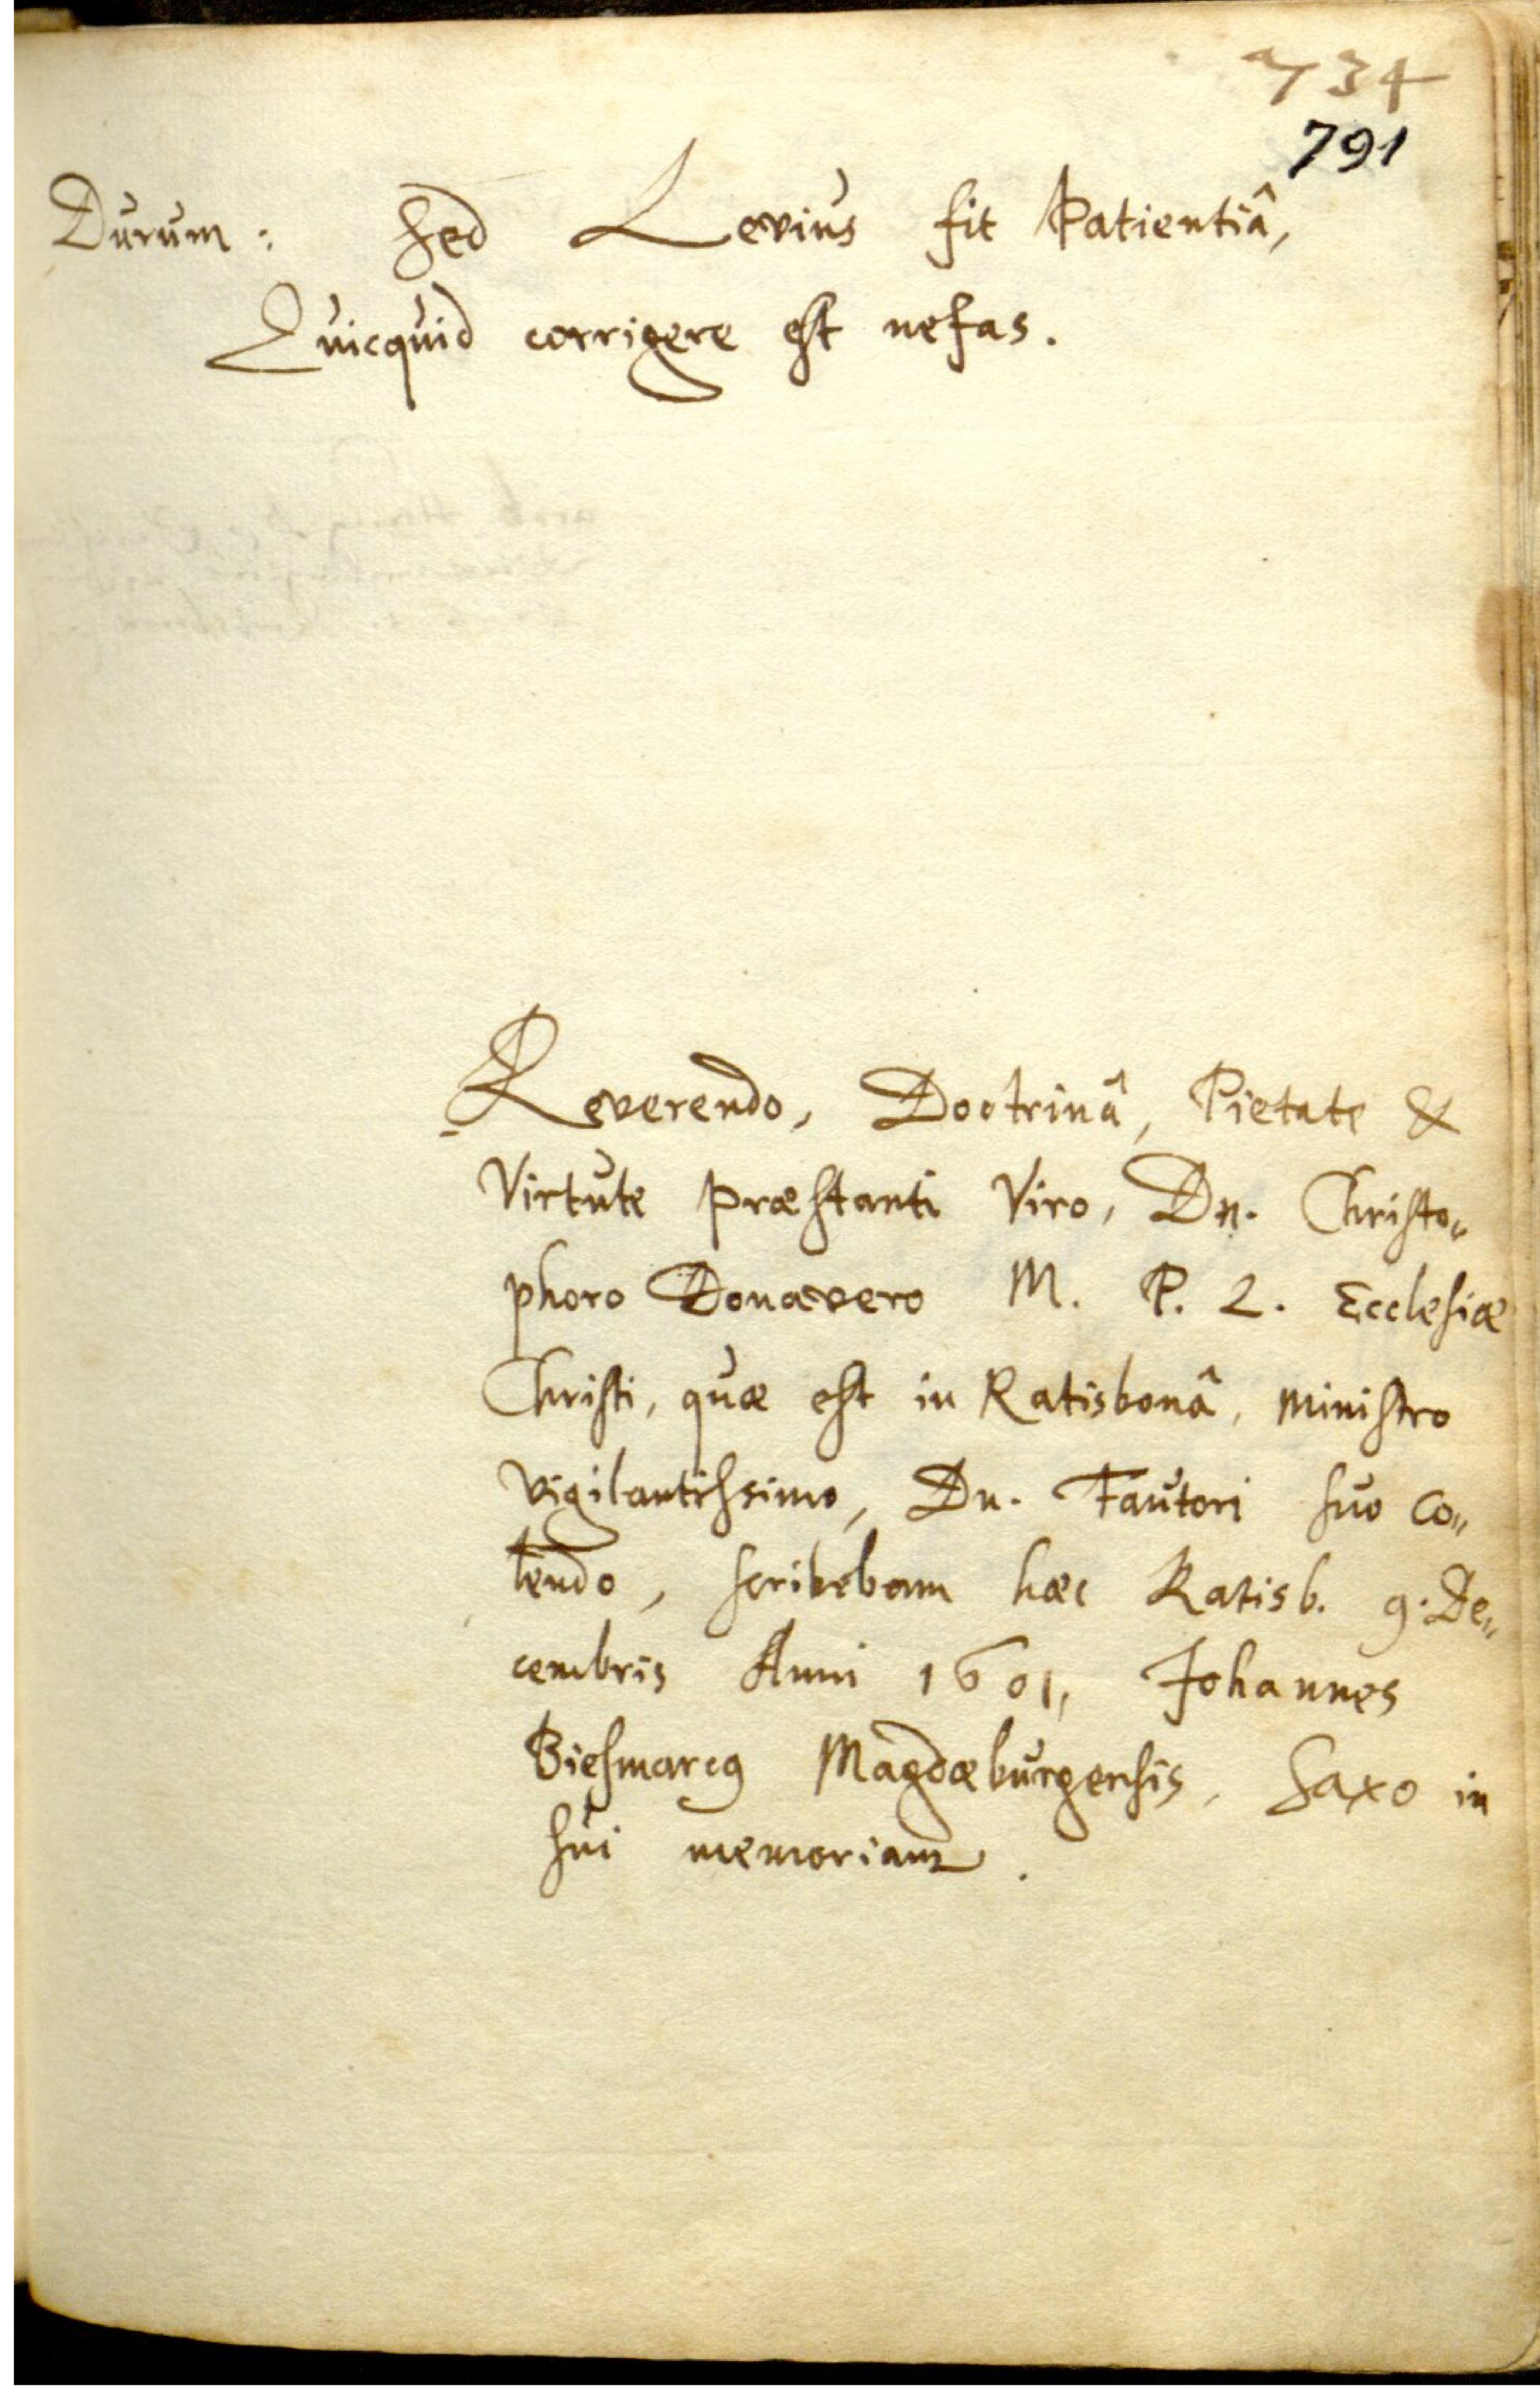 734
791
Durum: sed Levius fit Patientiâ,
Quicquid corrigere est nefas.
Reverendo, Doctrinâ, Pietate &
Virtute præstanti Viro, Dn. Christo„
phoro Donavero M. P. L. Ecclesiæ
Christi, quæ est in Ratisbonâ, Ministro
vigilantissimo, Dn. Fautori suo co„
lendo, scribebam hæc Ratisb. 9. De„
cembris Anni 1601, Johannes
Biesmarcg Magdæburgensis, Saxo in
sui memoriam.